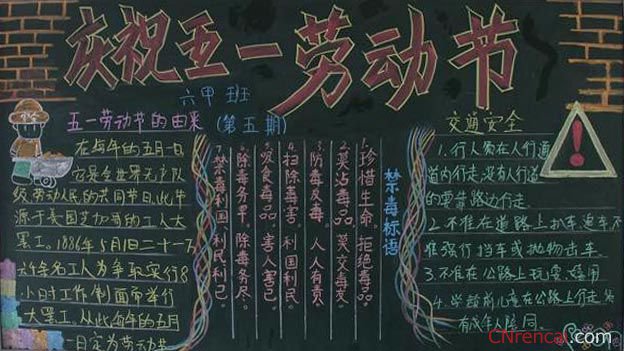 庆祝五一劳动节
六甲班
(第五期)
五一劳动节的由来
在每年的五月一日
它是全世界无产阶
级、劳动人民的共同节日,此节
源于美国芝加哥的工人大
罢工。1886年5月1日二十一万
六千余名工人为争取实行8
小时工作制而举行
大罢工。从此每年的五月
一日定为劳动节
禁毒标语
1.珍惜生命。拒绝毒品。
2.莫沾毒品。莫交毒友。
3.防毒反毒。人人有责
4.扫除毒害。利国利民。
5.吸食毒品。害人害己。
6.除毒务早。除毒务尽。
7.禁毒利国、利民利己。
交通安全
1.行人需在人行道
道内行走,没有人行道
的要靠路边行走。
2.不准在道路上扒车追车,不
准强行挡车或抛物击车。
3.不准在公路上玩耍、嬉闹
4.学龄前儿童在公路上行走
有成年人陪同。
CNrencai.com